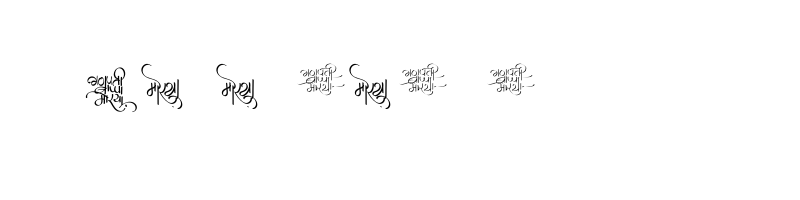 गणपती बाप्पा मोरया मोरया मोरया गणपती बाप्पा मोरया मोरया गणपती बाप्पा मोरया गणपती बाप्पा मोरया